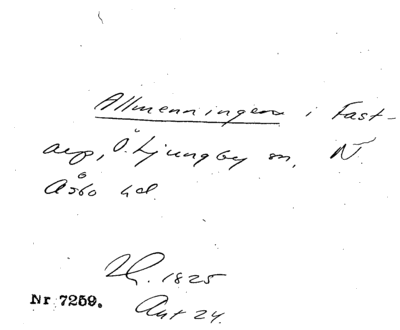 Allmenningen i Fast-
arp, Ö. Ljungby sn, N
Åsbo hd.
1825
Nr 7259. Akt 24.